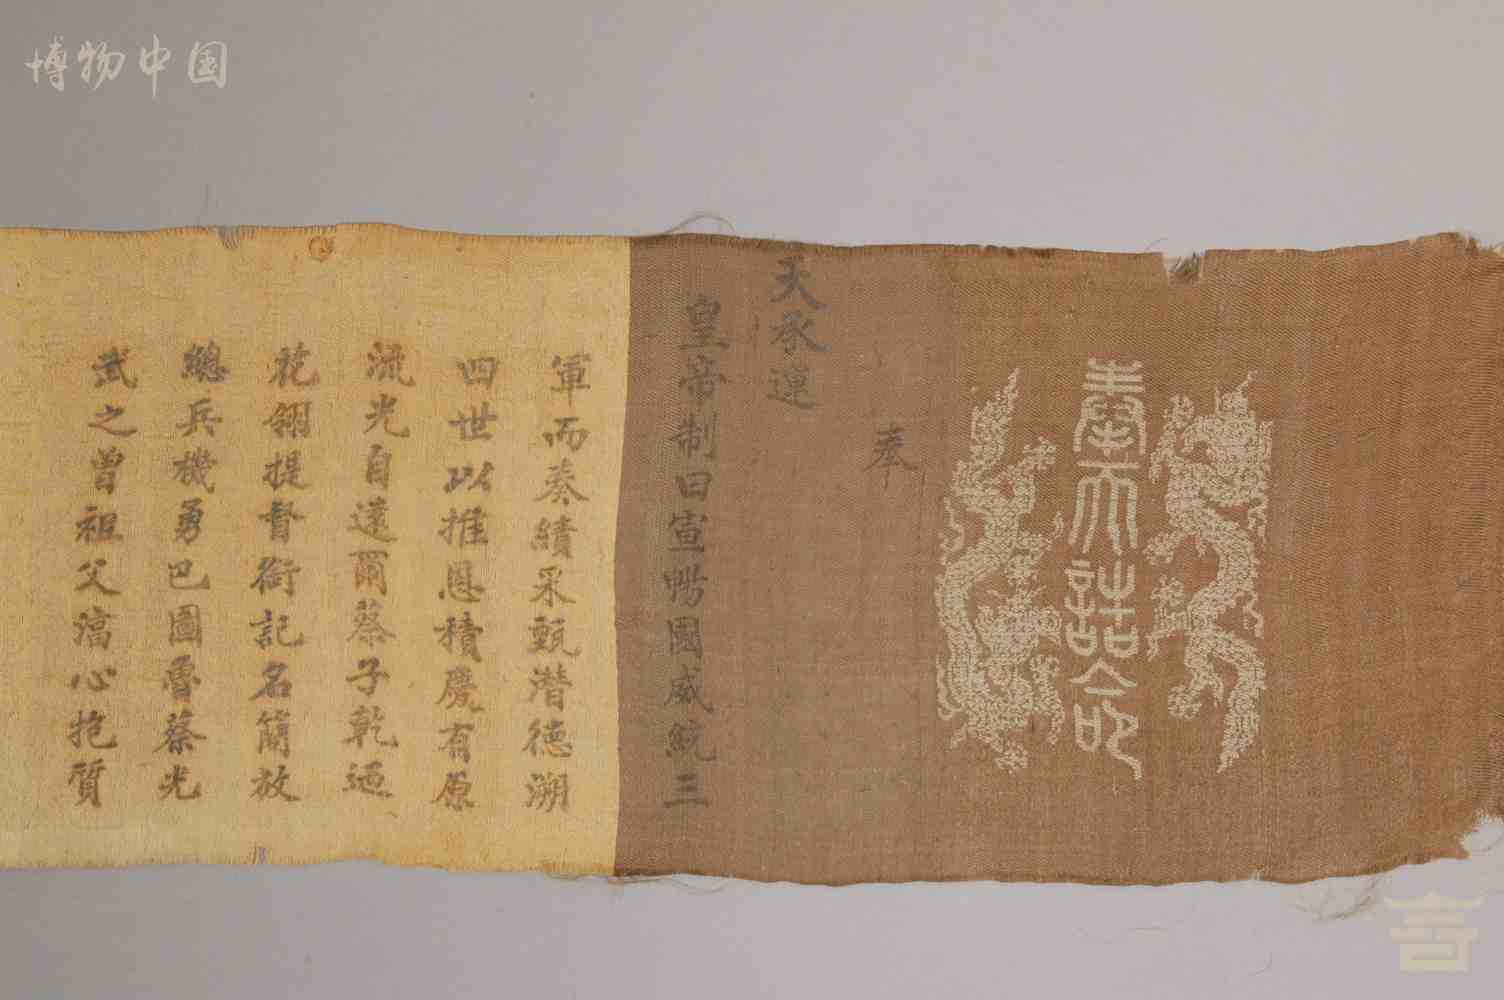 博物中国
奉天誥命
奉
天承運
皇帝制曰宣暢國威統三
軍而奏績采甄潛德溯
四世以推恩積慶有原
流光自遠爾蔡子乾迺
花翎提督銜記名簡放
總兵機勇巴圖魯蔡光
武之曾祖父藹心抱質